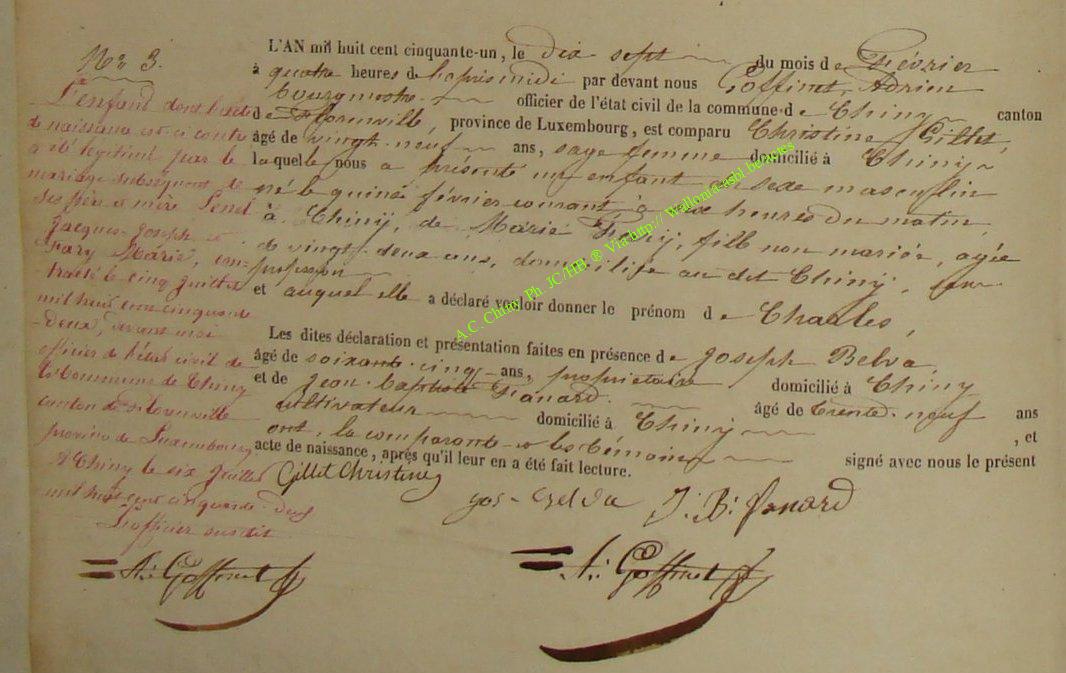 N° 3.
L'enfant dont l'acte
de naissance est ci contre
a été légitimé par le
mariage subséquent de
ses père et mère
Jacques-Joseph et
Fary Marie, con-
tracté le cinq Juillet
mil huit cent cinquante
-deux, devant moi
officier de l'état civil de
la Commune de Chiny
canton de Florenville
province de Luxembourg
A Chiny le six Juillet
mil huit cent cinquante-deux
L'officier susdit
A: Goffinet
L'AN mil huit cent cinquante-un, le dix sept du mois de Février
à quatre heures de l'après midi par devant nous Goffinet, Adrien
bourgmestre officier de l'état civil de la commune de Chiny canton
de Florenville, province de Luxembourg, est comparu Christine Gillet,
âgé de vingt-neuf ans, sage femme domicilié à Chiny
laquelle nous a présenté un enfant de sexe masculin
né le quinze février courant à heures du matin,
à Chiny, de Marie Fary, fille non mariée, agée
de vingt-deux ans, domiciliée au dit Chiny, sans
profession
et auquel elle a déclaré vouloir donner le prénom de Charles,
Les dites déclaration et présentation faites en présence de Joseph Belva,
âgé de soixante-cinq ans, propriétaire domicilié à Chiny
et de Jean-Baptiste Fanard. âgé de trente-neuf ans
cultivateur domicilié à Chiny , et
ont, la comparante et les témoins signé avec nous le présent
acte de naissance, après qu'il leur en a été fait lecture.
Gillet Christine
jos- Belva J: B: fanard
A: Goffinet
A.C. Chiny Ph JC/HB ® Via http:// Wallonia-asbl be/actes